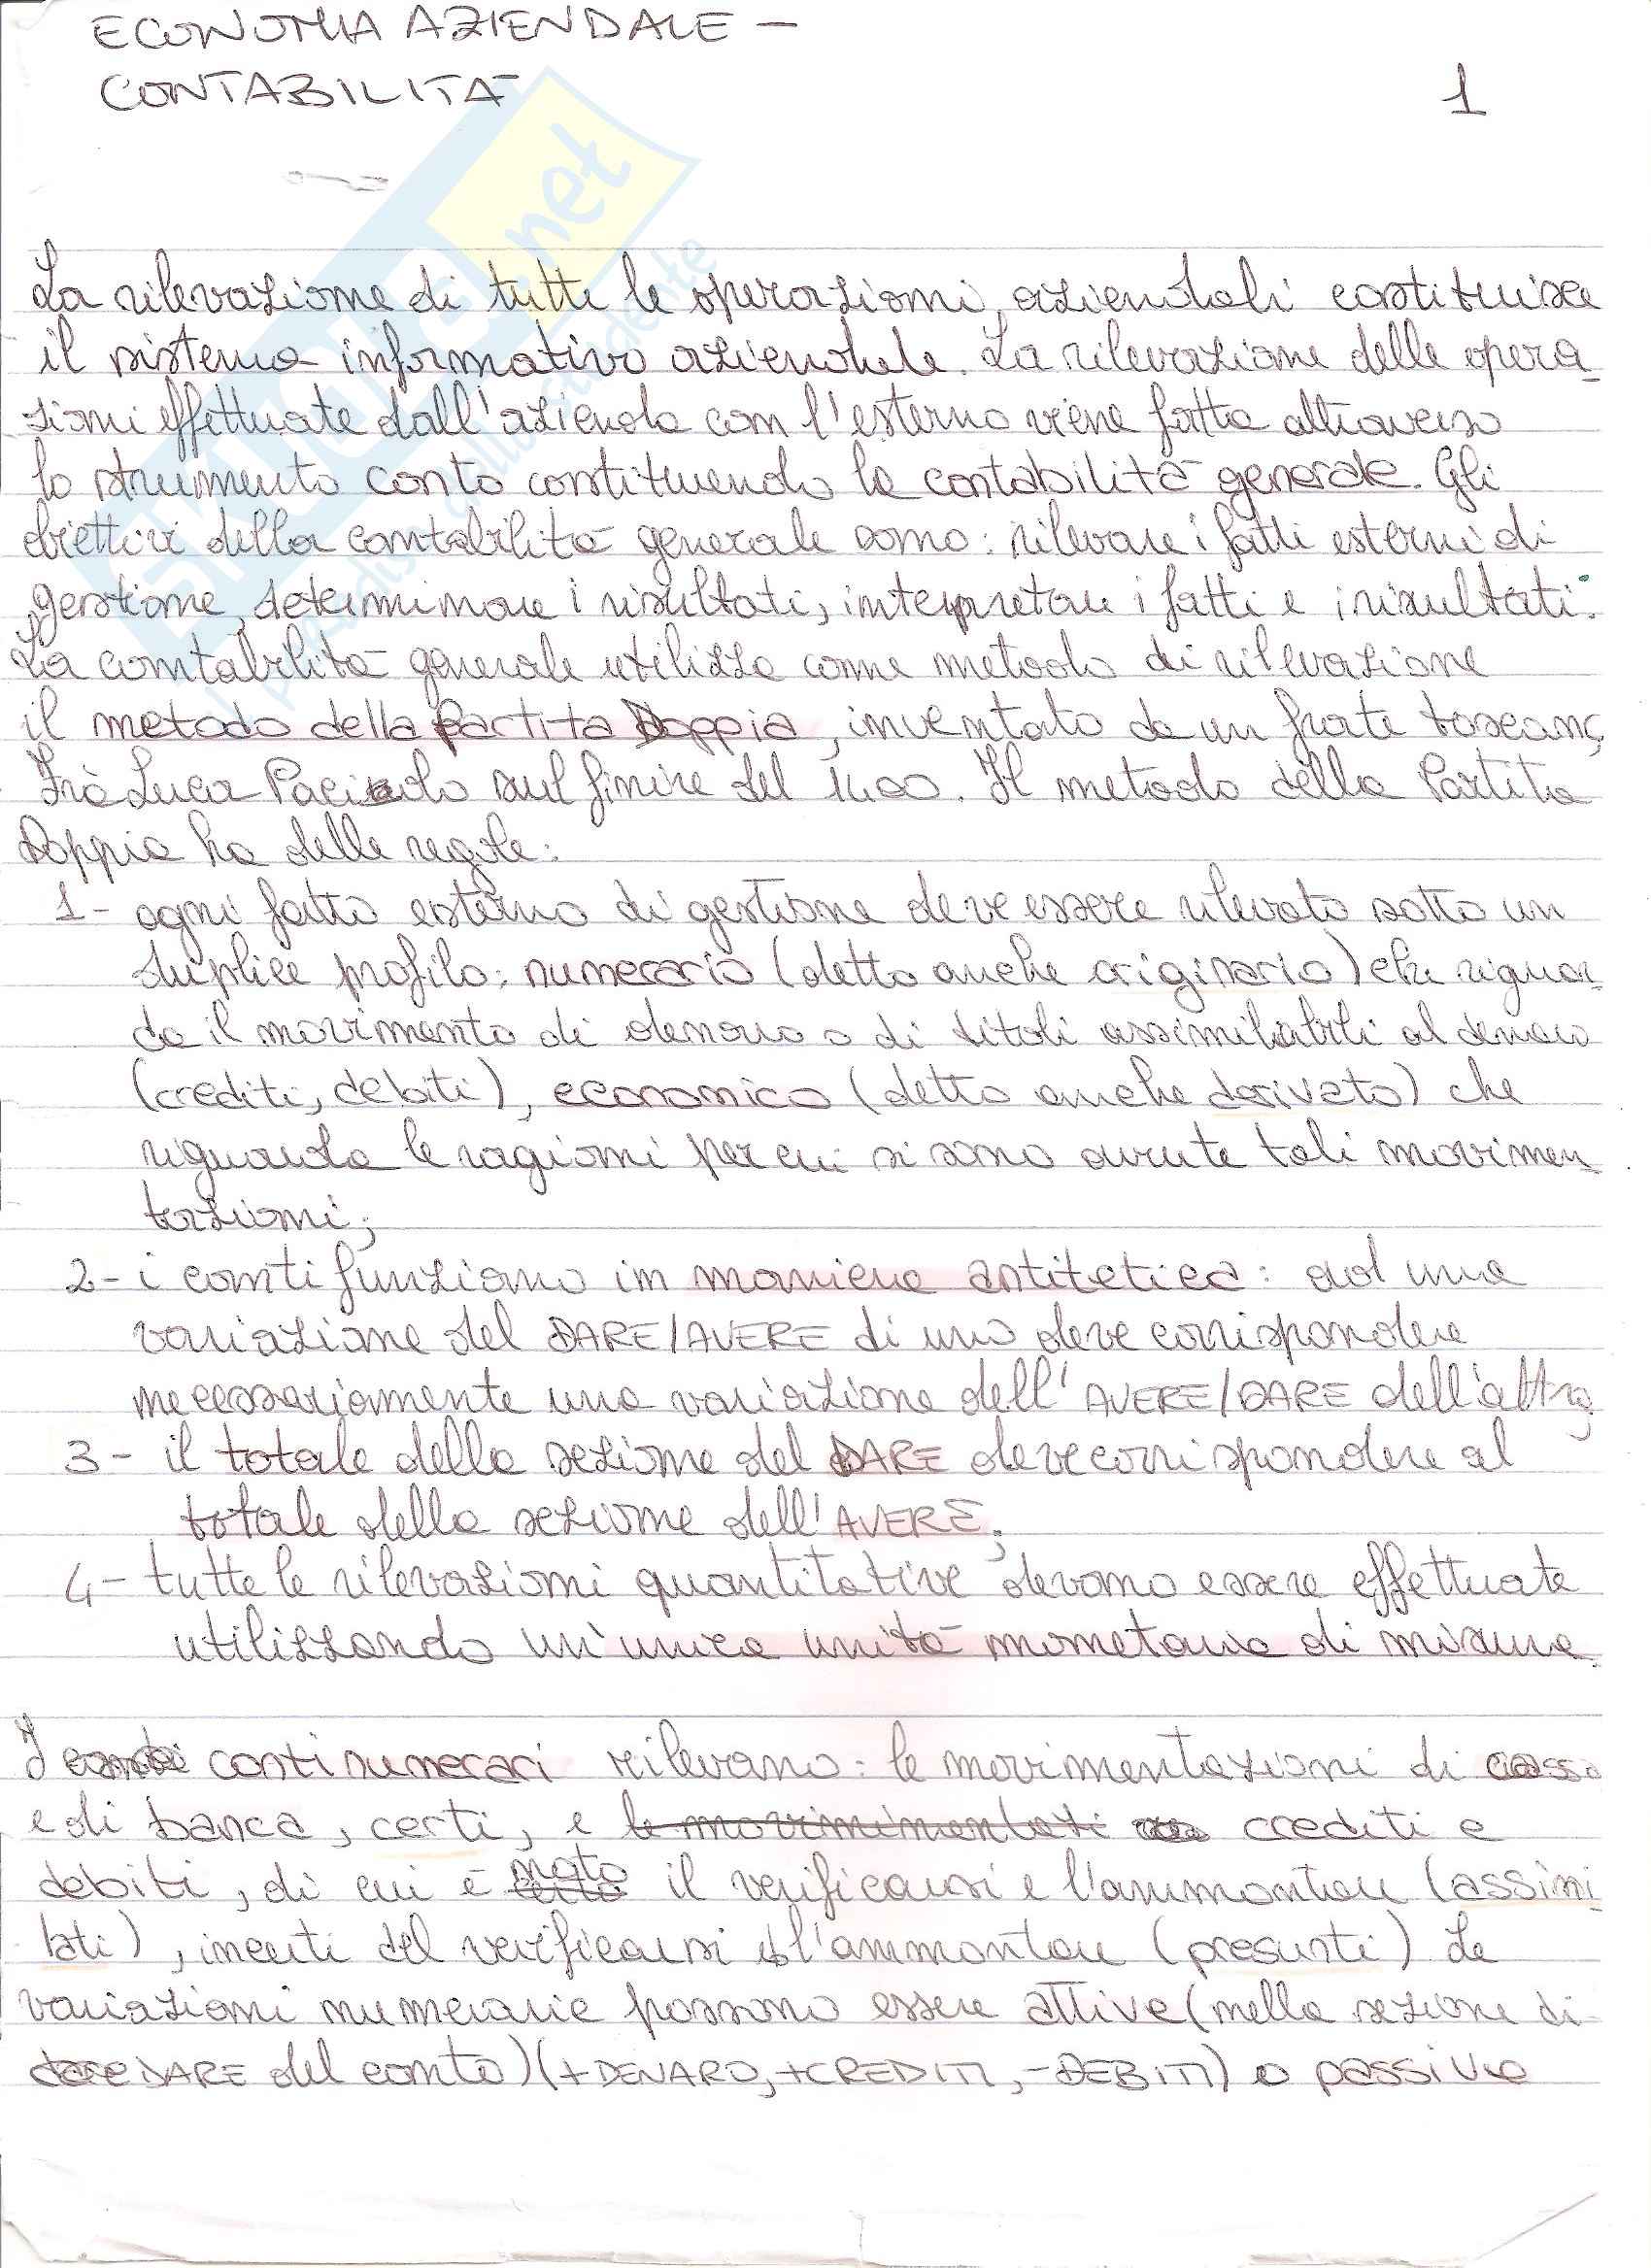 ECONOMIA AZIENDALE -
CONTABILITÀ
1
La rilevazione di tutte le operazioni aziendali costituisce
il sistema informativo aziendale. La rilevazione delle opera-
zioni effettuate dall'azienda con l'esterno viene fatta attraverso
lo strumento conto costituendo la contabilità generale. Gli
obiettivi della contabilità generale sono: rilevare i fatti esterni di
gestione, determinare i risultati, interpretare i fatti e i risultati.
La contabilità generale utilizza come metodo di rilevazione
il metodo della Partita Doppia, inventato da un frate toscano,
Frà Luca Paciolo sul finire del 1400. Il metodo della Partita
Doppia ha delle regole:
1- ogni fatto esterno di gestione deve essere rilevato sotto un
duplice profilo: numerario (detto anche originario) che riguar-
da il movimento di denaro o di titoli assimilabili al denaro
(crediti, debiti), economico (detto anche derivato) che
riguarda le ragioni per cui si sono avute tali movimen-
tazioni;
2- i conti funziono in maniera antitetica: ad una
variazione del DARE/AVERE di uno deve corrispondere
necessariamente una variazione dell'AVERE/DARE dell'altro;
3- il totale della sezione del DARE deve corrispondere al
totale della sezione dell'AVERE;
4- tutte le rilevazioni quantitative devono essere effettuate
utilizzando un'unica unità monetaria di misura.
I conti numerari rilevano: le movimentazioni di cassa
e di banca, certi, e le movimimentati crediti e
debiti, di cui è noto il verificarsi e l'ammontare (assimi
lati), incerti del verificarsi o l'ammontare (presunti) Le
variazioni numerarie possono essere attive (nella sezione di
dare DARE del conto) (+DENARO, +CREDITI, -DEBITI) o passive
skuola.net
il paradiso dello studente